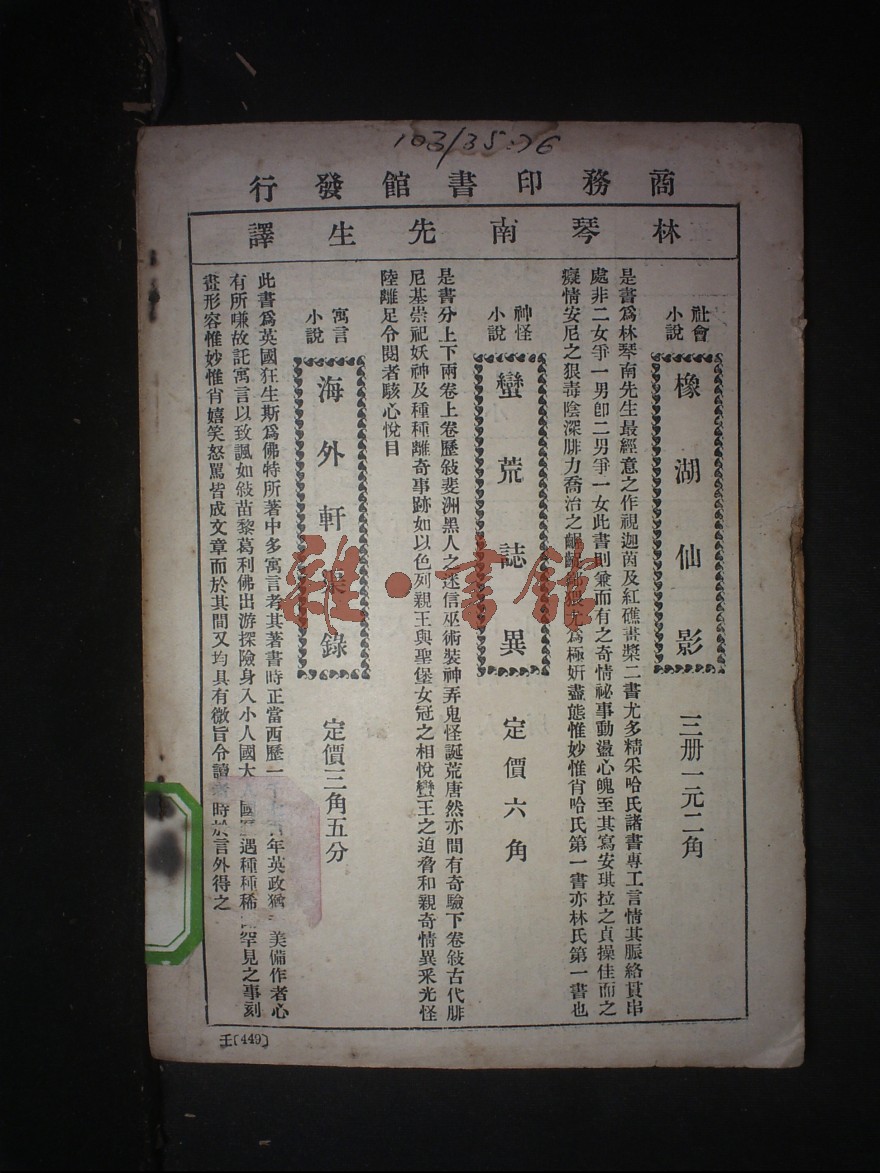 103/35:76
商務印書館發行
林琴南先生譯
社會小說
橡湖仙影
三册一元二角
是書爲林琴南先生最經意之作視迦茵及紅礁畫槳二書尤多精采哈氏諸書專工言情其脈絡貫串
處非二女爭一男卽二男爭一女此書則兼而有之奇情祕事動盪心魄至其寫安琪拉之貞操佳而之
癡情安尼之狠毒陰深腓力喬治之齷齪鄙猥尤爲極妍盡態惟妙惟肖哈氏第一書亦林氏第一書也
神怪小說
蠻荒誌異
定價六角
是書分上下兩卷上卷歷敍斐洲黑人之迷信巫術裝神弄鬼怪誕荒唐然亦間有奇驗下卷敍古代腓
尼基崇祀妖神及種種離奇事跡如以色列親王與聖堡女冠之相悅蠻王之迫脅和親奇情異采光怪
陸離足令閱者駭心悅目
寓言小說
海外軒渠錄
定價三角五分
此書爲英國狂生斯爲佛特所著中多寓言考其著書時正當西歷一千 年英政猶 美備作者心
有所嗛故託寓言以致諷如敍苗黎葛利佛出游探險身入小人國大 國 遇種種稀 罕見之事刻
畫形容惟妙惟肖嬉笑怒罵皆成文章而於其間又均具有微旨令讀者時於言外得之
王〔449〕
雜·書館